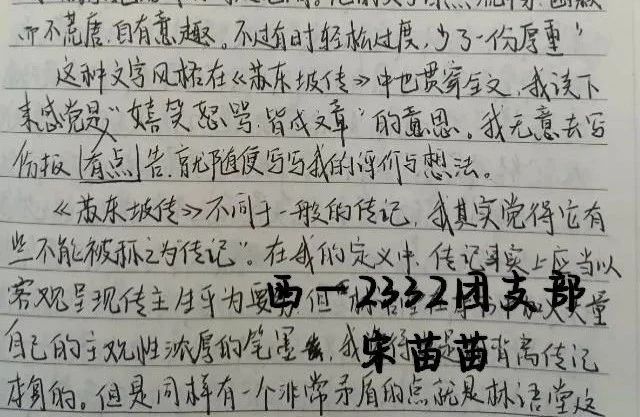 而不荒唐,自有意趣。不过有时轻松过度,少了一份厚重"
这种文字风格在《苏东坡传》中也贯穿全文,我读下
来感觉是"嬉笑怒骂,皆成文章"的意思。我无意去写
份报有点告,就随便写写我的评价与想法。
《苏东坡传》不同于一般的传记,我其实觉得它有
些不能被称之为"传记"。在我的定义中,传记事实上应当以
客观呈现传主生平为要 但 大量
西一2332团支部
自己的主观性浓厚的笔墨 我 背离传记
宋苗苗
本身的。但是同样有一个非常矛盾的点就是林语堂这